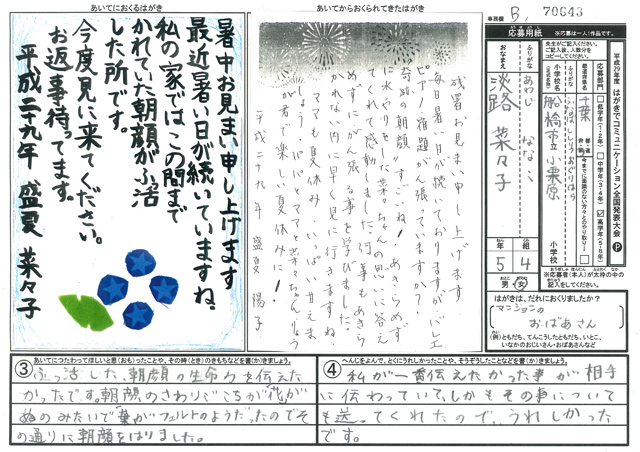 あいてにおくるはがき
暑中お見まい申し上げます
最近暑い日が続いていますね。
私の家ではこの間まで
かれていた朝顔がふ活
した所です。
今度見に来てください。
お返事待ってます。
平成二十九年 盛夏 菜々子
あいてからおくられてきたはがき
残暑お見まい申し上げます
毎日暑い日が続いておりますがバレエ
ピアノ宿題が張ってますか?
奇跡の朝顔すごいね!あきらめず
に水やりをした菜々ちゃんの思いに答え
てくれて感動しました。何事もあきら
めずがん張る事を学びました。
かれない内に早く見に行きますね
ママも夏休みいっぱい甘えま
しょう。パパ ママと菜々ちゃん
が君で楽しい夏休みに!
平成二十九年 盛夏 陽子
事務欄 B, 70643
応募用紙
※応募は一人1作品です。
平成29年度 はがきでコミュニケーション全国発表大会 P
応募部門
低学年(1・2年)
中学年(3・4年)
高学年(5・6年)
都道府県名
千葉
小学校名
船橋市立小栗原
小学校
ふりがな
あわじ ななこ
おなまえ
淡路 菜々子
年 組
5 4
男・女
※応募者(本人)が太枠の中の記入をしてください。
はがきは、だれにおくりましたか?
マンションのおばあさん
(例)ともだち、てんこうしたともだち、いとこ、いなかのおじいさん・おばあさんなど
③ あいてにつたわってほしいと思(おも)ったことや、その時(とき)のきもちなどを書(か)きましょう。
ふっ活した、朝顔の生命力を伝えた
かったです。朝顔のさわりごこちが花が
ぬのみたいで葉がフェルトのようだったのでそ
の通りに朝顔をはりました。
④ へんじをよんで、とくにうれしかったことや、そうぞうしたことなどを書(か)きましょう。
私が一番伝えたかった事が相手
に伝わっていて、しかもその事について
も送ってくれたので、うれしかった
です。